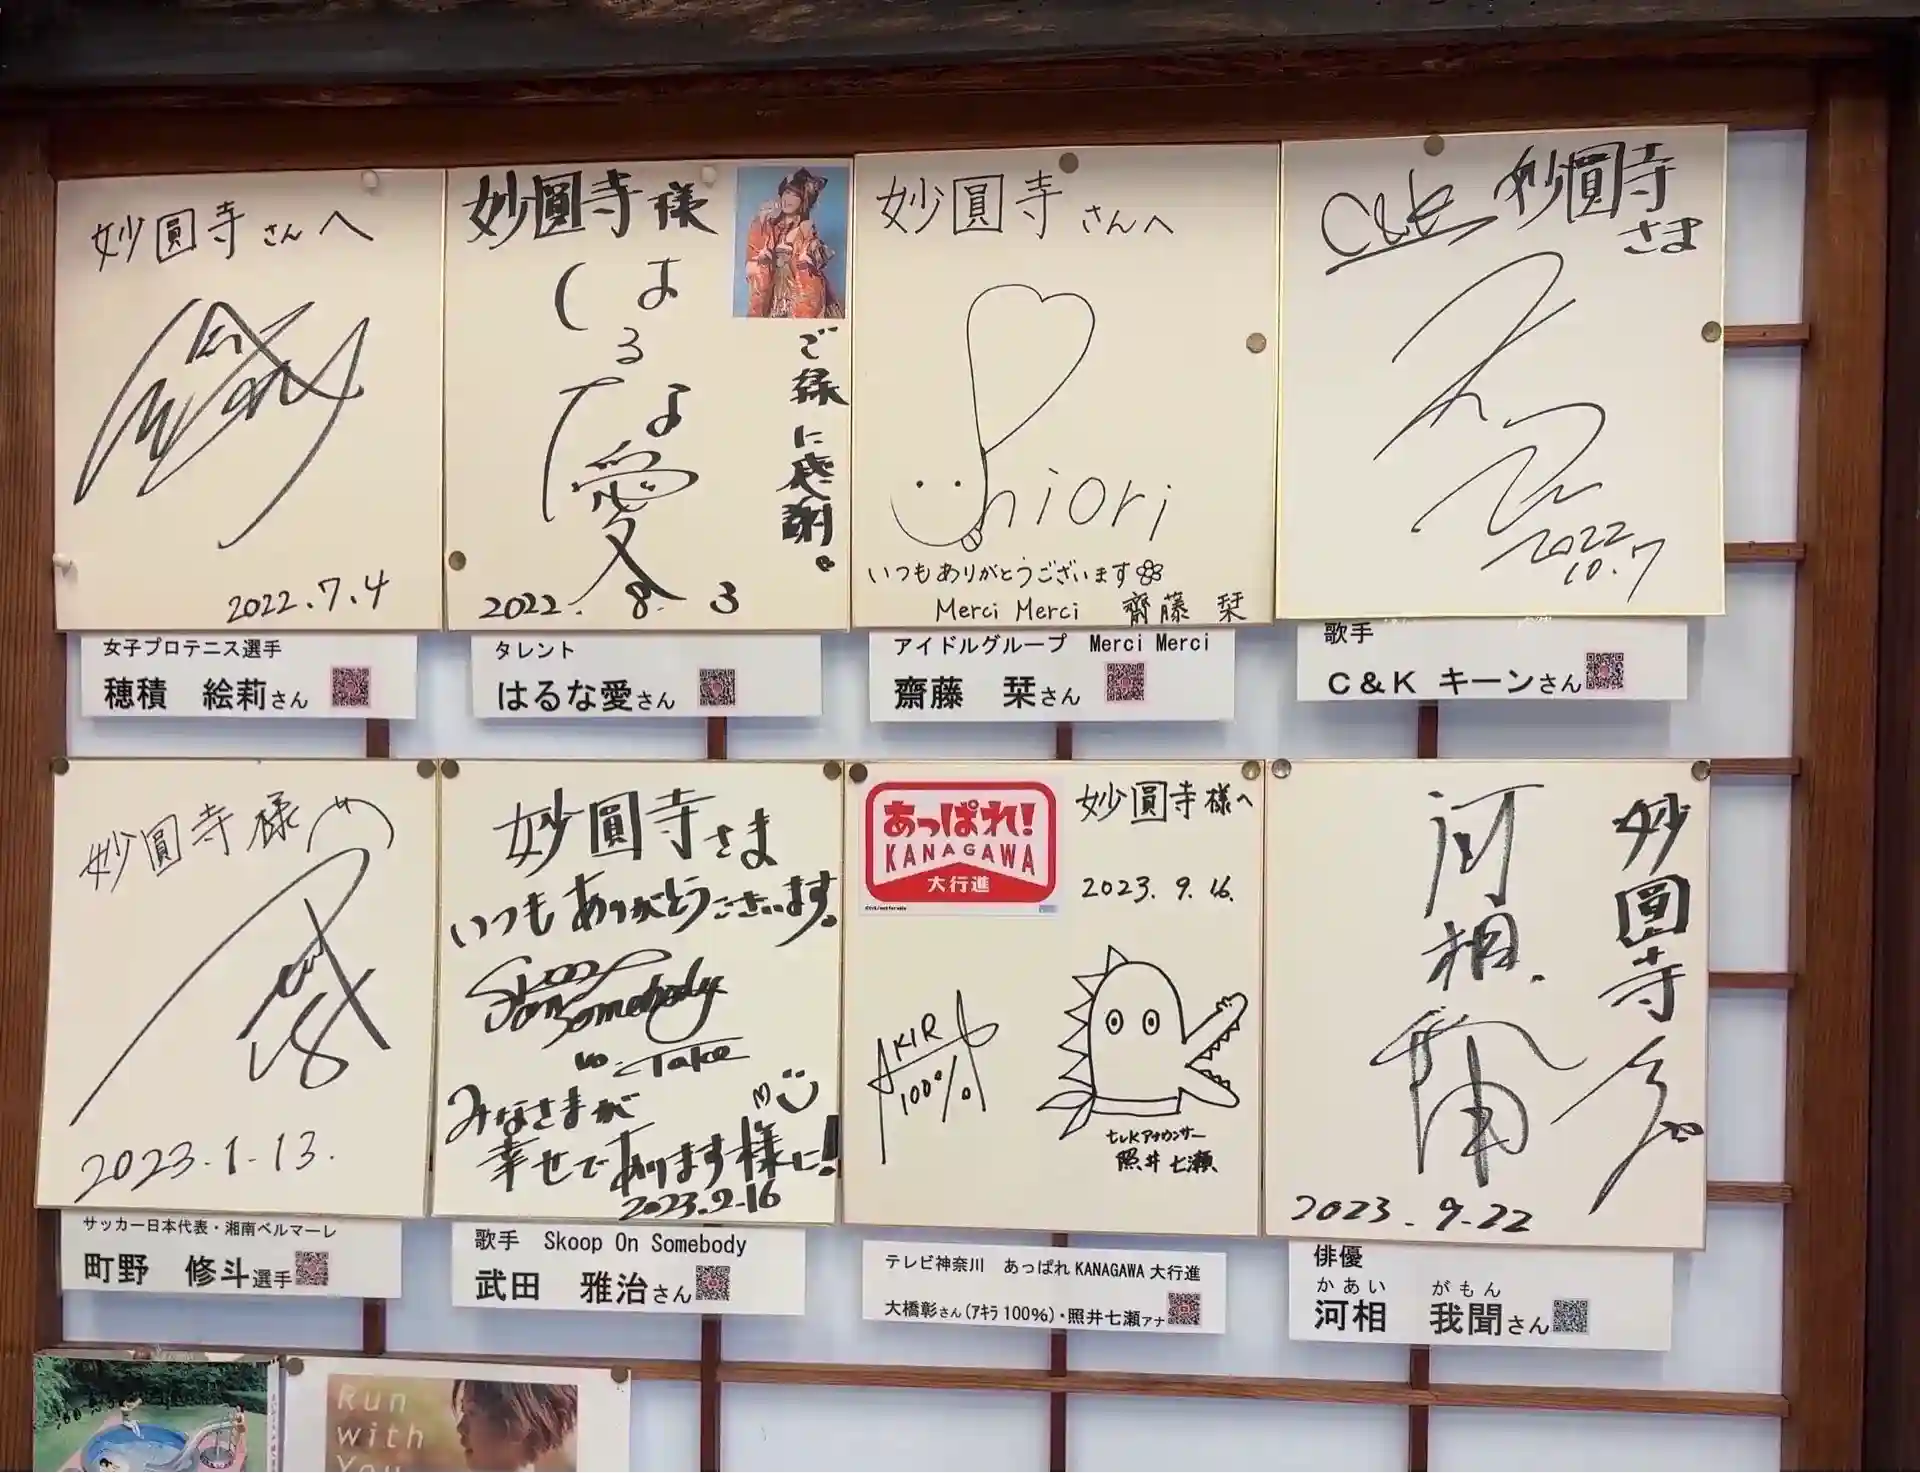 妙圓寺さんへ
2022.7.4
女子プロテニス選手
穂積 絵莉さん
妙圓寺様
はるな愛
ご縁に感謝。
2022. 8. 3
タレント
はるな愛さん
妙圓寺さんへ
Shiori
いつもありがとうございます
Merci Merci 齊藤 栞
アイドルグループ Merci Merci
齋藤 栞さん
C&K 妙圓寺さま
2022
10.7
歌手
C&K キーンさん
妙圓寺様
18
2023.1.13.
サッカー日本代表・湘南ベルマーレ
町野 修斗選手
妙圓寺さま
いつもありがとうございます。
Skoop
On Somebody
Take
みなさまが
幸せであります様に!
2023.2.16
歌手 Skoop On Somebody
武田 雅治さん
あっぱれ!
KANAGAWA
大行進
妙圓寺様へ
2023.9.16.
AKIRA
100%
tvkアナウンサー
照井七瀬
テレビ神奈川 あっぱれKANAGAWA大行進
大橋彰さん(アキラ100%)・照井七瀬アナ
妙圓寺
河相
2023.9.22
俳優
かあい がもん
河相 我聞さん
Run
with
You